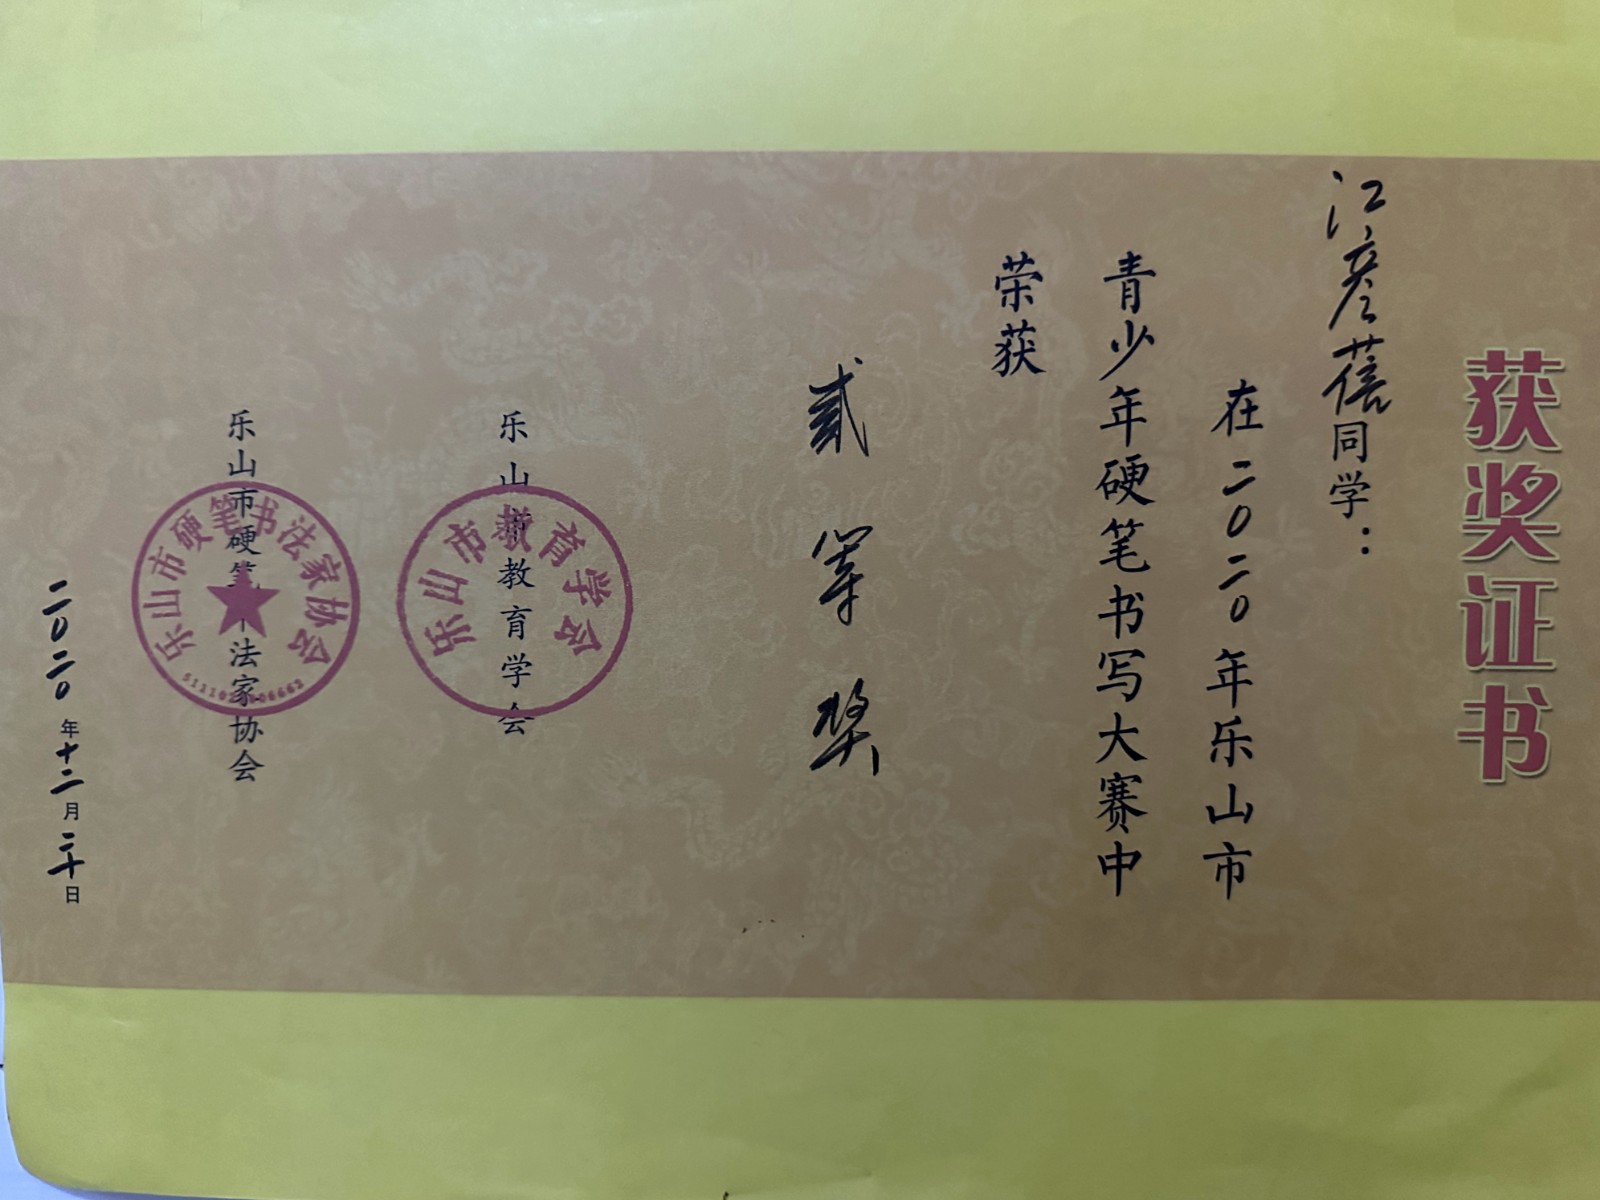 获奖证书
江彦蓓同学：
在二〇二〇年乐山市
青少年硬笔书写大赛中
荣获
贰等奖
乐山市教育学会
乐山市教育学会
乐山市硬笔书法家协会
乐山市硬笔书法家协会
二〇二〇年十二月二十日